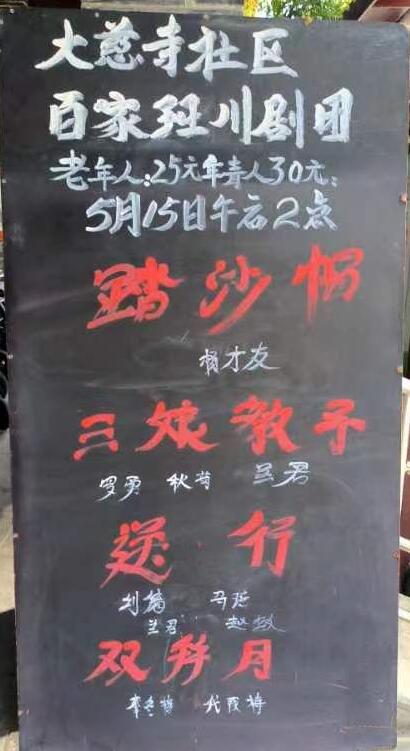 大慈寺社区
百家班川剧团
老年人:25元年青人30元:
5月15日午后2点
踏沙帽
杨才友
三娘教子
罗勇 秋菊 兰君
送行
刘 马
兰君 赵敏
双拜月
李 代 梅